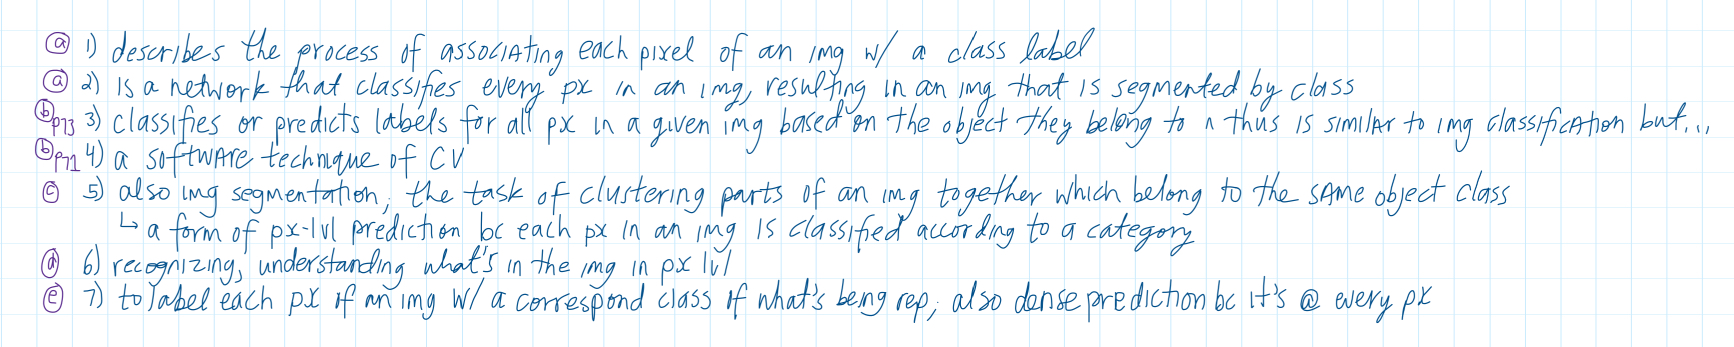 ⓐ 1) describes the process of associating each pixel of an img w/ a class label
ⓐ 2) is a network that classifies every px in an img, resulting in an img that is segmented by class
ⓑ p73 3) classifies or predicts labels for all px in a given img based on the object they belong to n thus is similar to img classification but...
ⓑ p71 4) a software technique of CV
ⓒ 5) also img segmentation; the task of clustering parts of an img together which belong to the same object class
↳ a form of px-lvl prediction bc each px in an img is classified according to a category
ⓓ 6) recognizing, understanding what's in the img in px lvl
ⓔ 7) to label each px of an img w/ a correspond class of what's being rep; also dense prediction bc it's @ every px